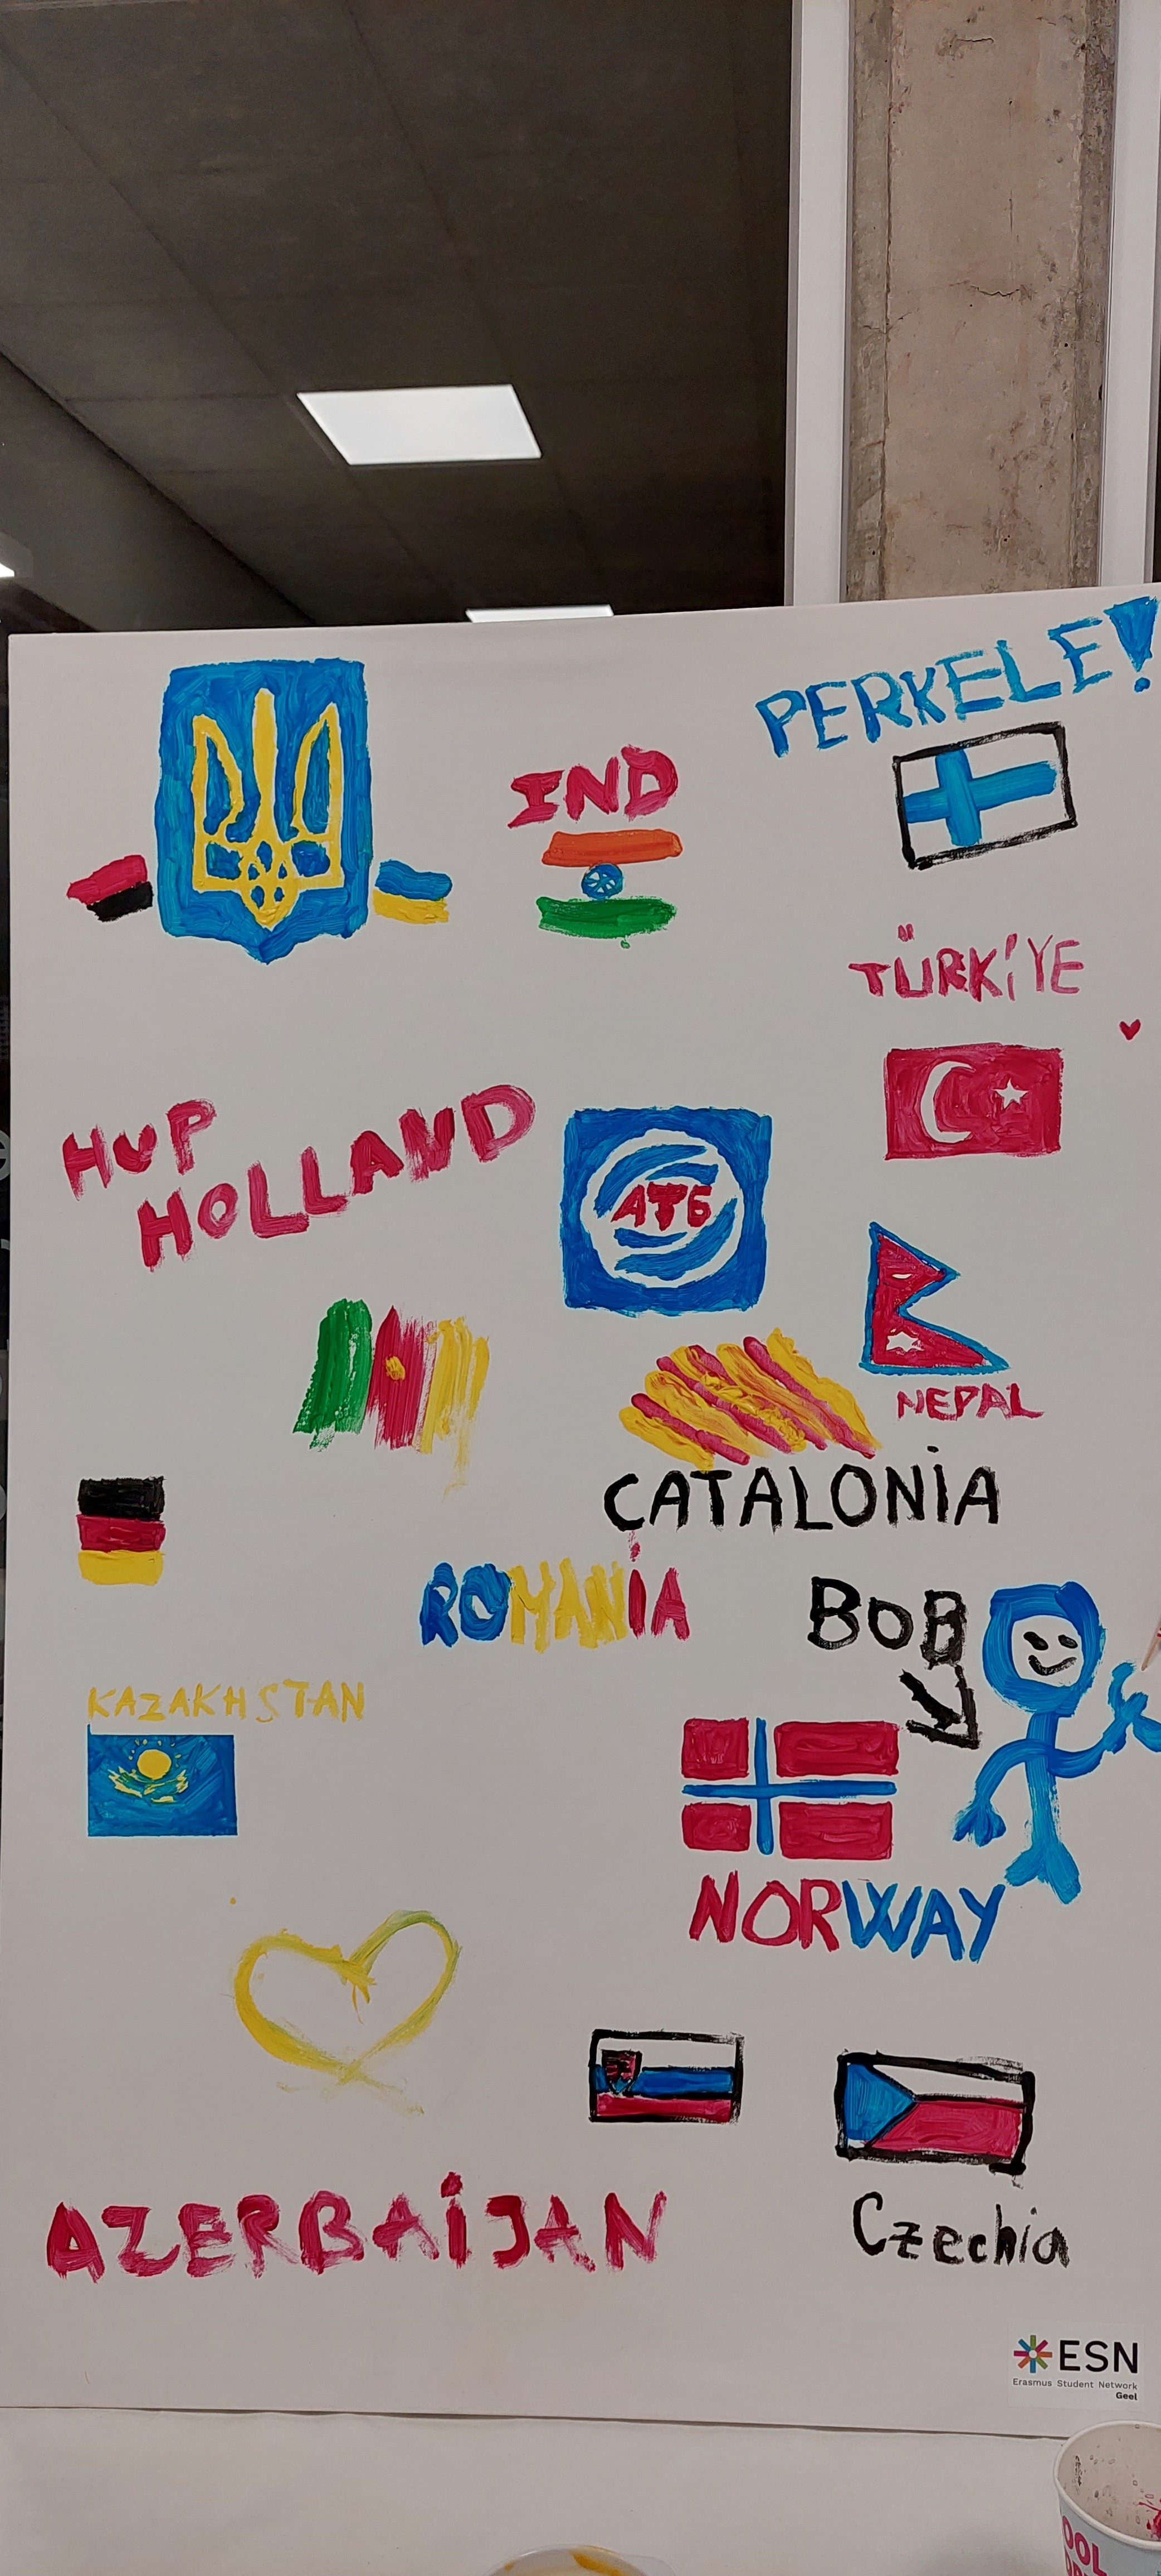 PERKELE!
IND
TÜRKİYE
HUP
HOLLAND
АТБ
NEPAL
CATALONİA
ROMANİA
BOB
KAZAKHSTAN
NORWAY
AZERBAİJAN
Czechia
ESN
Erasmus Student Network
Geel